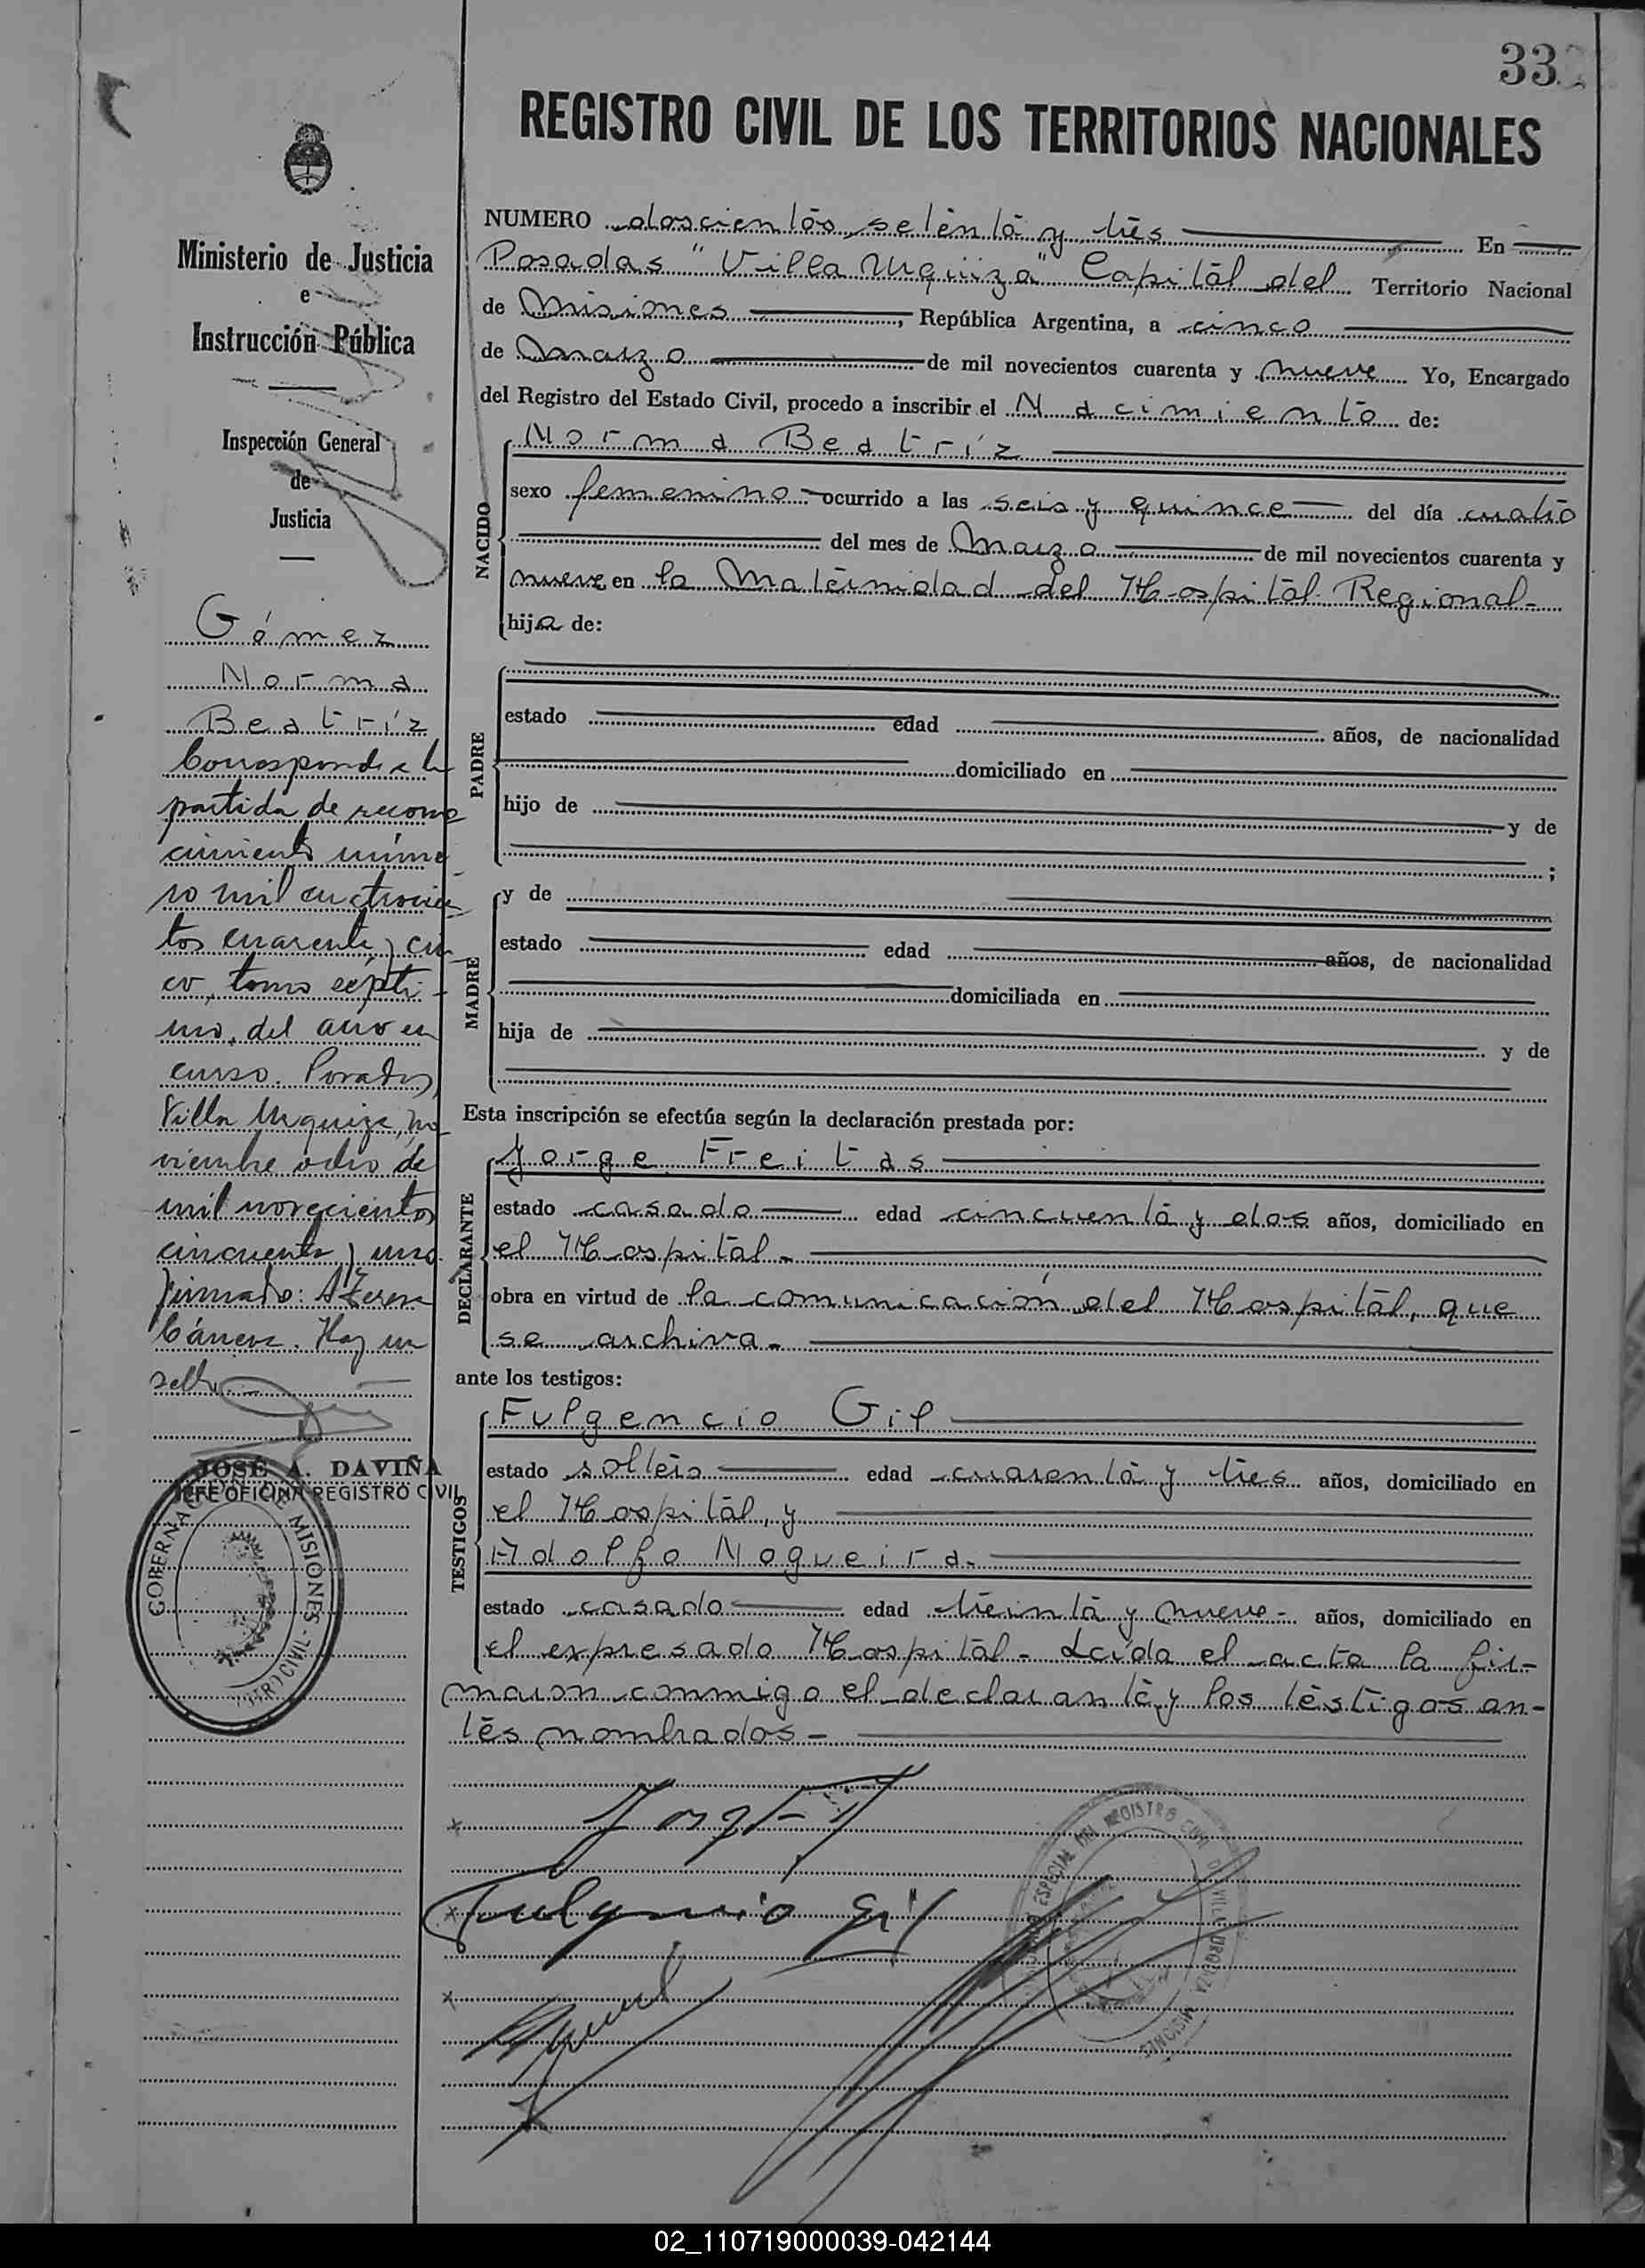 33
REGISTRO CIVIL DE LOS TERRITORIOS NACIONALES
Ministerio de Justicia
e
Instrucción Pública
Inspección General
de
Justicia
Gómez
Norma
Beatríz
Corresponde a la
partida de recono
cimiento núme
ro mil cuatrocien
tos cuarenta y cin
co, tomo sépti-
mo, del año en
curso. Posadas,
Villa Urquiza, no
viembre ocho de
mil novecientos
cincuenta y uno.
Firmado: A
Cáneva. Hay un
sello.
JOSÉ A. DAVIÑA
JEFE OFICINA REGISTRO CIVIL
GOBERNACION DE MISIONES
NUMERO doscientos setenta y tres En
Posadas "Villa Urquiza" Capital del Territorio Nacional
de Misiones, República Argentina, a cinco
de Marzo de mil novecientos cuarenta y nueve Yo, Encargado
del Registro del Estado Civil, procedo a inscribir el Nacimiento de:
NACIDO
Norma Beatríz
sexo femenino ocurrido a las seis y quince del día cuatro
del mes de Marzo de mil novecientos cuarenta y
nueve en la Maternidad del Hospital Regional-
hija de:
PADRE
estado edad años, de nacionalidad
domiciliado en
hijo de y de
;
MADRE
y de
estado edad años, de nacionalidad
domiciliada en
hija de y de
Esta inscripción se efectúa según la declaración prestada por:
DECLARANTE
Jorge Freitas
estado casado edad cincuenta y dos años, domiciliado en
el Hospital-
obra en virtud de la comunicación del Hospital, que
se archiva.
ante los testigos:
TESTIGOS
Fulgencio Gil
estado soltero edad cuarenta y tres años, domiciliado en
el Hospital, y
Adolfo Nogueira.
estado casado edad treinta y nueve- años, domiciliado en
el expresado Hospital- Leída el acta la fir-
maron conmigo el declarante y los testigos an-
tes nombrados-
Fulgencio Gil
02_110719000039-042144